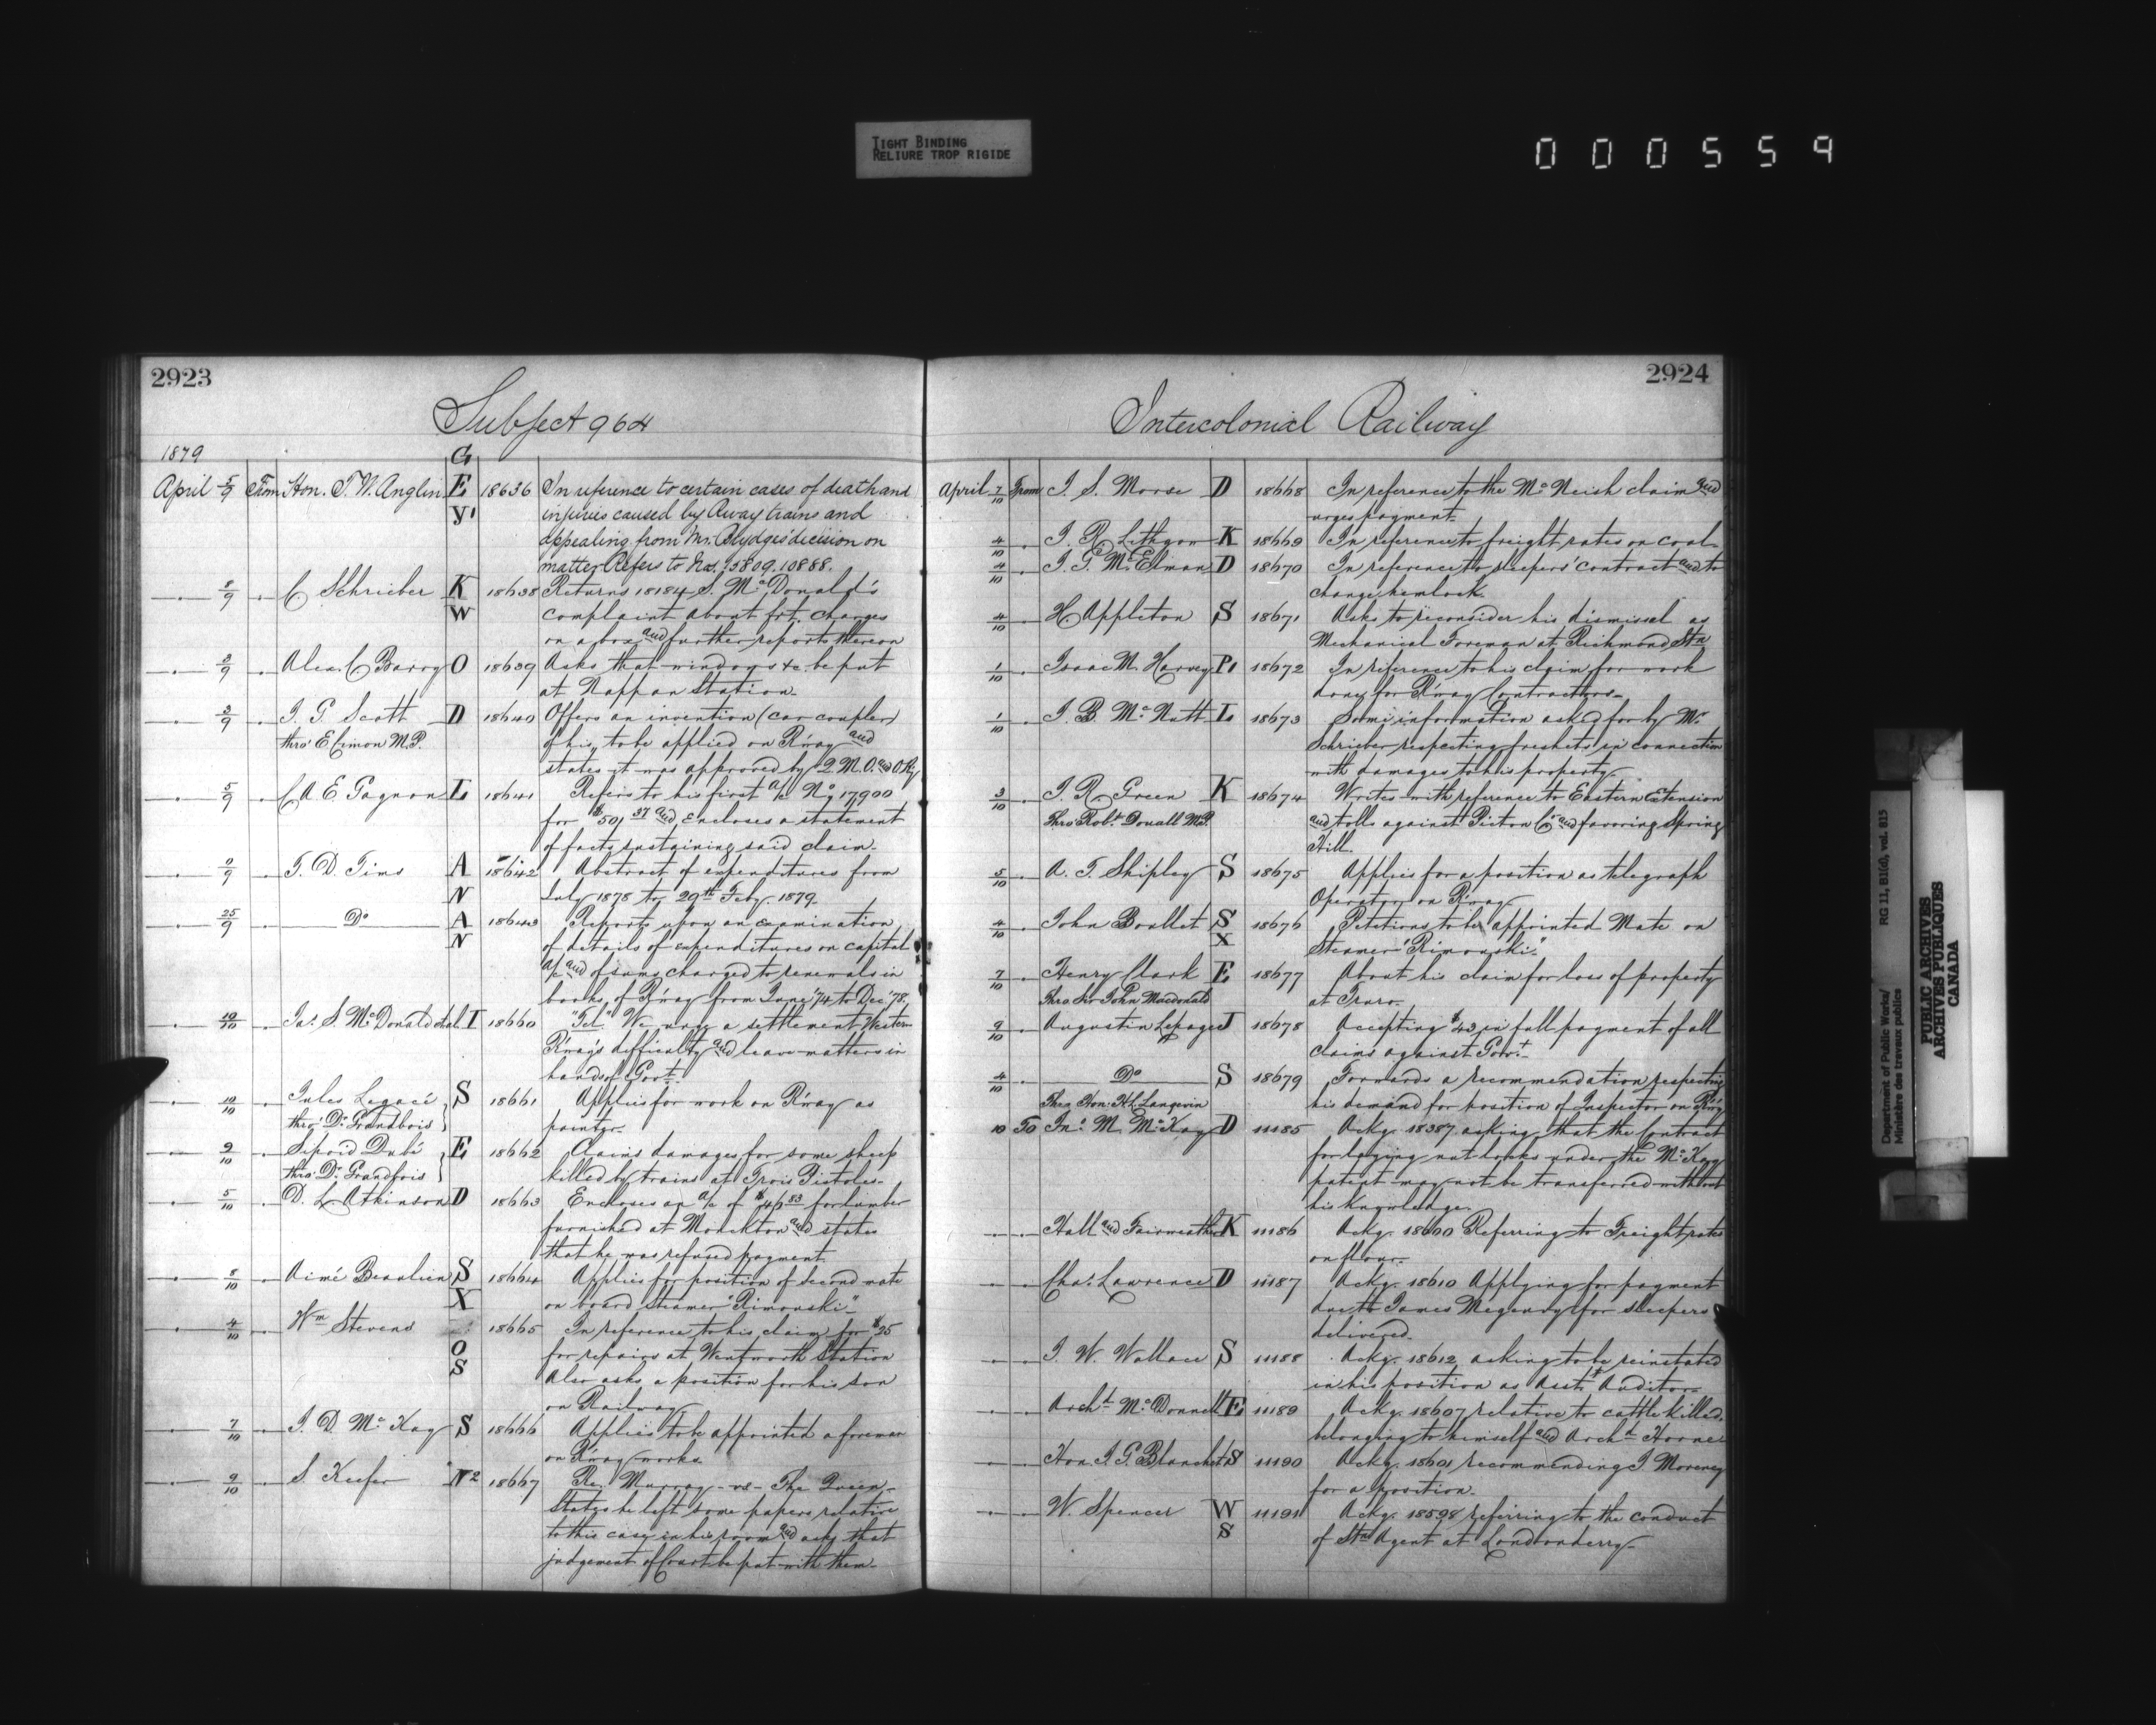 TIGHT BINDING
RELIURE TROP RIGIDE
000559
2923
Subject 964
1879
April 5/9 From Hon. T. W. Anglin G E Y 18636 In reference to certain cases of death and
injuries caused by Rway trains and
appealing from Mr. Brydges' decision on
matter. Refers to Nos. 15809. 10888.
8/9 C. Schrieber K W 18638 Returns 18184 S. McDonald's
complaint about frt. charges
on a box and further reports thereon
8/9 Alex. C Barry O 18639 Asks that windows &c be put
at Nappan Station.
3/9 J. G. Scott D 18640 Offers an invention (car coupler)
thro' E Cimon M.P. of his, to be applied on R'way and
states it was approved by Q.M.O. and O. Ry
5/9 C. A. E Gagnon L 18641 Refers to his first a/c No 17900
for $501.37 and Encloses a statement
of facts sustaining said claim.
9/9 T. D. Tims A N 18642 Abstract of expenditures from
July 1878 to 29th Feby. 1879.
25/9 Do A N 18643 Reports upon an examination
of details of expenditures on capital
a/c and of sums charged to renewals in
books of R'way from June '74 to Dec. '78.
10/10 Jas. S. McDonald et al. I 18660 "Tel" We urge a settlement Western
R'way's difficulty and leave matters in
hands of Govt.
10/10 Jules Legacé S 18661 Applies for work on R'way as
thro' Dr. Grandbois painter.
9/10 Sifroid Dubé E 18662 Claims damages for some sheep
thro' Dr. Grandbois killed by trains at Trois Pistoles.
5/10 D. L. Atkinson D 18663 Encloses an a/c of $46.83 for lumber
furnished at Monckton and states
that he was refused payment
8/10 Aimé Beaulieu S X 18664 Applies for position of second mate
on board Steamer "Rimouski"
4/10 Wm Stevens O S 18665 In reference to his claim for $25
for repairs at Wentworth Station
Also asks a position for his son
on Railway
7/10 J. D. McKay S 18666 Applies to be appointed a foreman
on R'way works.
9/10 S. Keefer N2 18667 Re. Murray -vs- The Queen.
States he left some papers relative
to this case in his room and asks that
judgement of Court be put with them.
2924
Intercolonial Railway
April 7/10 From J. S. Morse D 18668 In reference to the McNeish claim and
urges payment.
4/10 J. R. Lithgow K 18669 In reference to freight rates on coal
4/10 J. G. McElman D 18670 In reference to sleepers' contract and to
change hemlock.
4/10 H Appleton S 18671 Asks to reconsider his dismissal as
Mechanical Foreman at Richmond Stn
1/10 Isaac M. Harvey P. 18672 In reference to his claim for work
done for R'way Contractors.
1/10 J. B. McNutt L 18673 Some information asked for by Mr
Schrieber respecting freshets in connection
with damages to his property.
3/10 J. R. Green K 18674 Writes with reference to Eastern Extension
Thro' Robt. Douall M.P. and tolls against Pictou Co and favoring Spring
Hill.
5/10 A. T. Shipley S 18675 Applies for a position as telegraph
Operator on R'way
4/10 John Boullet S X 18676 Petitions to be appointed Mate on
Steamer "Rimouski".
7/10 Henry Clark E 18677 About his claim for loss of property
Thro. Sir John Macdonald at Truro.
9/10 Augustin Lepage I 18678 Accepting $43 in full payment of all
claims against Govt.
4/10 Do S 18679 Forwards a recommendation respecting
Thro. Hon. H. L. Langevin his demand for position of Inspector on R'wy
10 To Jno. M. McKay D 11185 Ackg. 18387 asking that the Contract
for laying nut locks under the McKay
patent may not be transferred without
his knowledge.
Hall and Fairweather K 11186 Ackg. 18600 Referring to Freight rates
on flour.
Chas. Lawrence D 11187 Ackg. 18610 Applying for payment
due to James Megenvy for sleepers
delivered.
J. W. Wallace S 11188 Ackg. 18612 asking to be reinstated
in his position as Asst. Auditor
Archd. McDonnell E 11189 Ackg. 18607 relative to cattle killed,
belonging to himself and Archd. Horne
Hon. J. G. Blanchet S 11190 Ackg. 18601 recommending J Moreney
for a position.
W. Spencer W S 11191 Ackg. 18598 referring to the conduct
of Stn Agent at Londonderry
Department of Public Works/ RG 11, B1(d), vol. 815
Ministère des travaux publics
PUBLIC ARCHIVES
ARCHIVES PUBLIQUES
CANADA